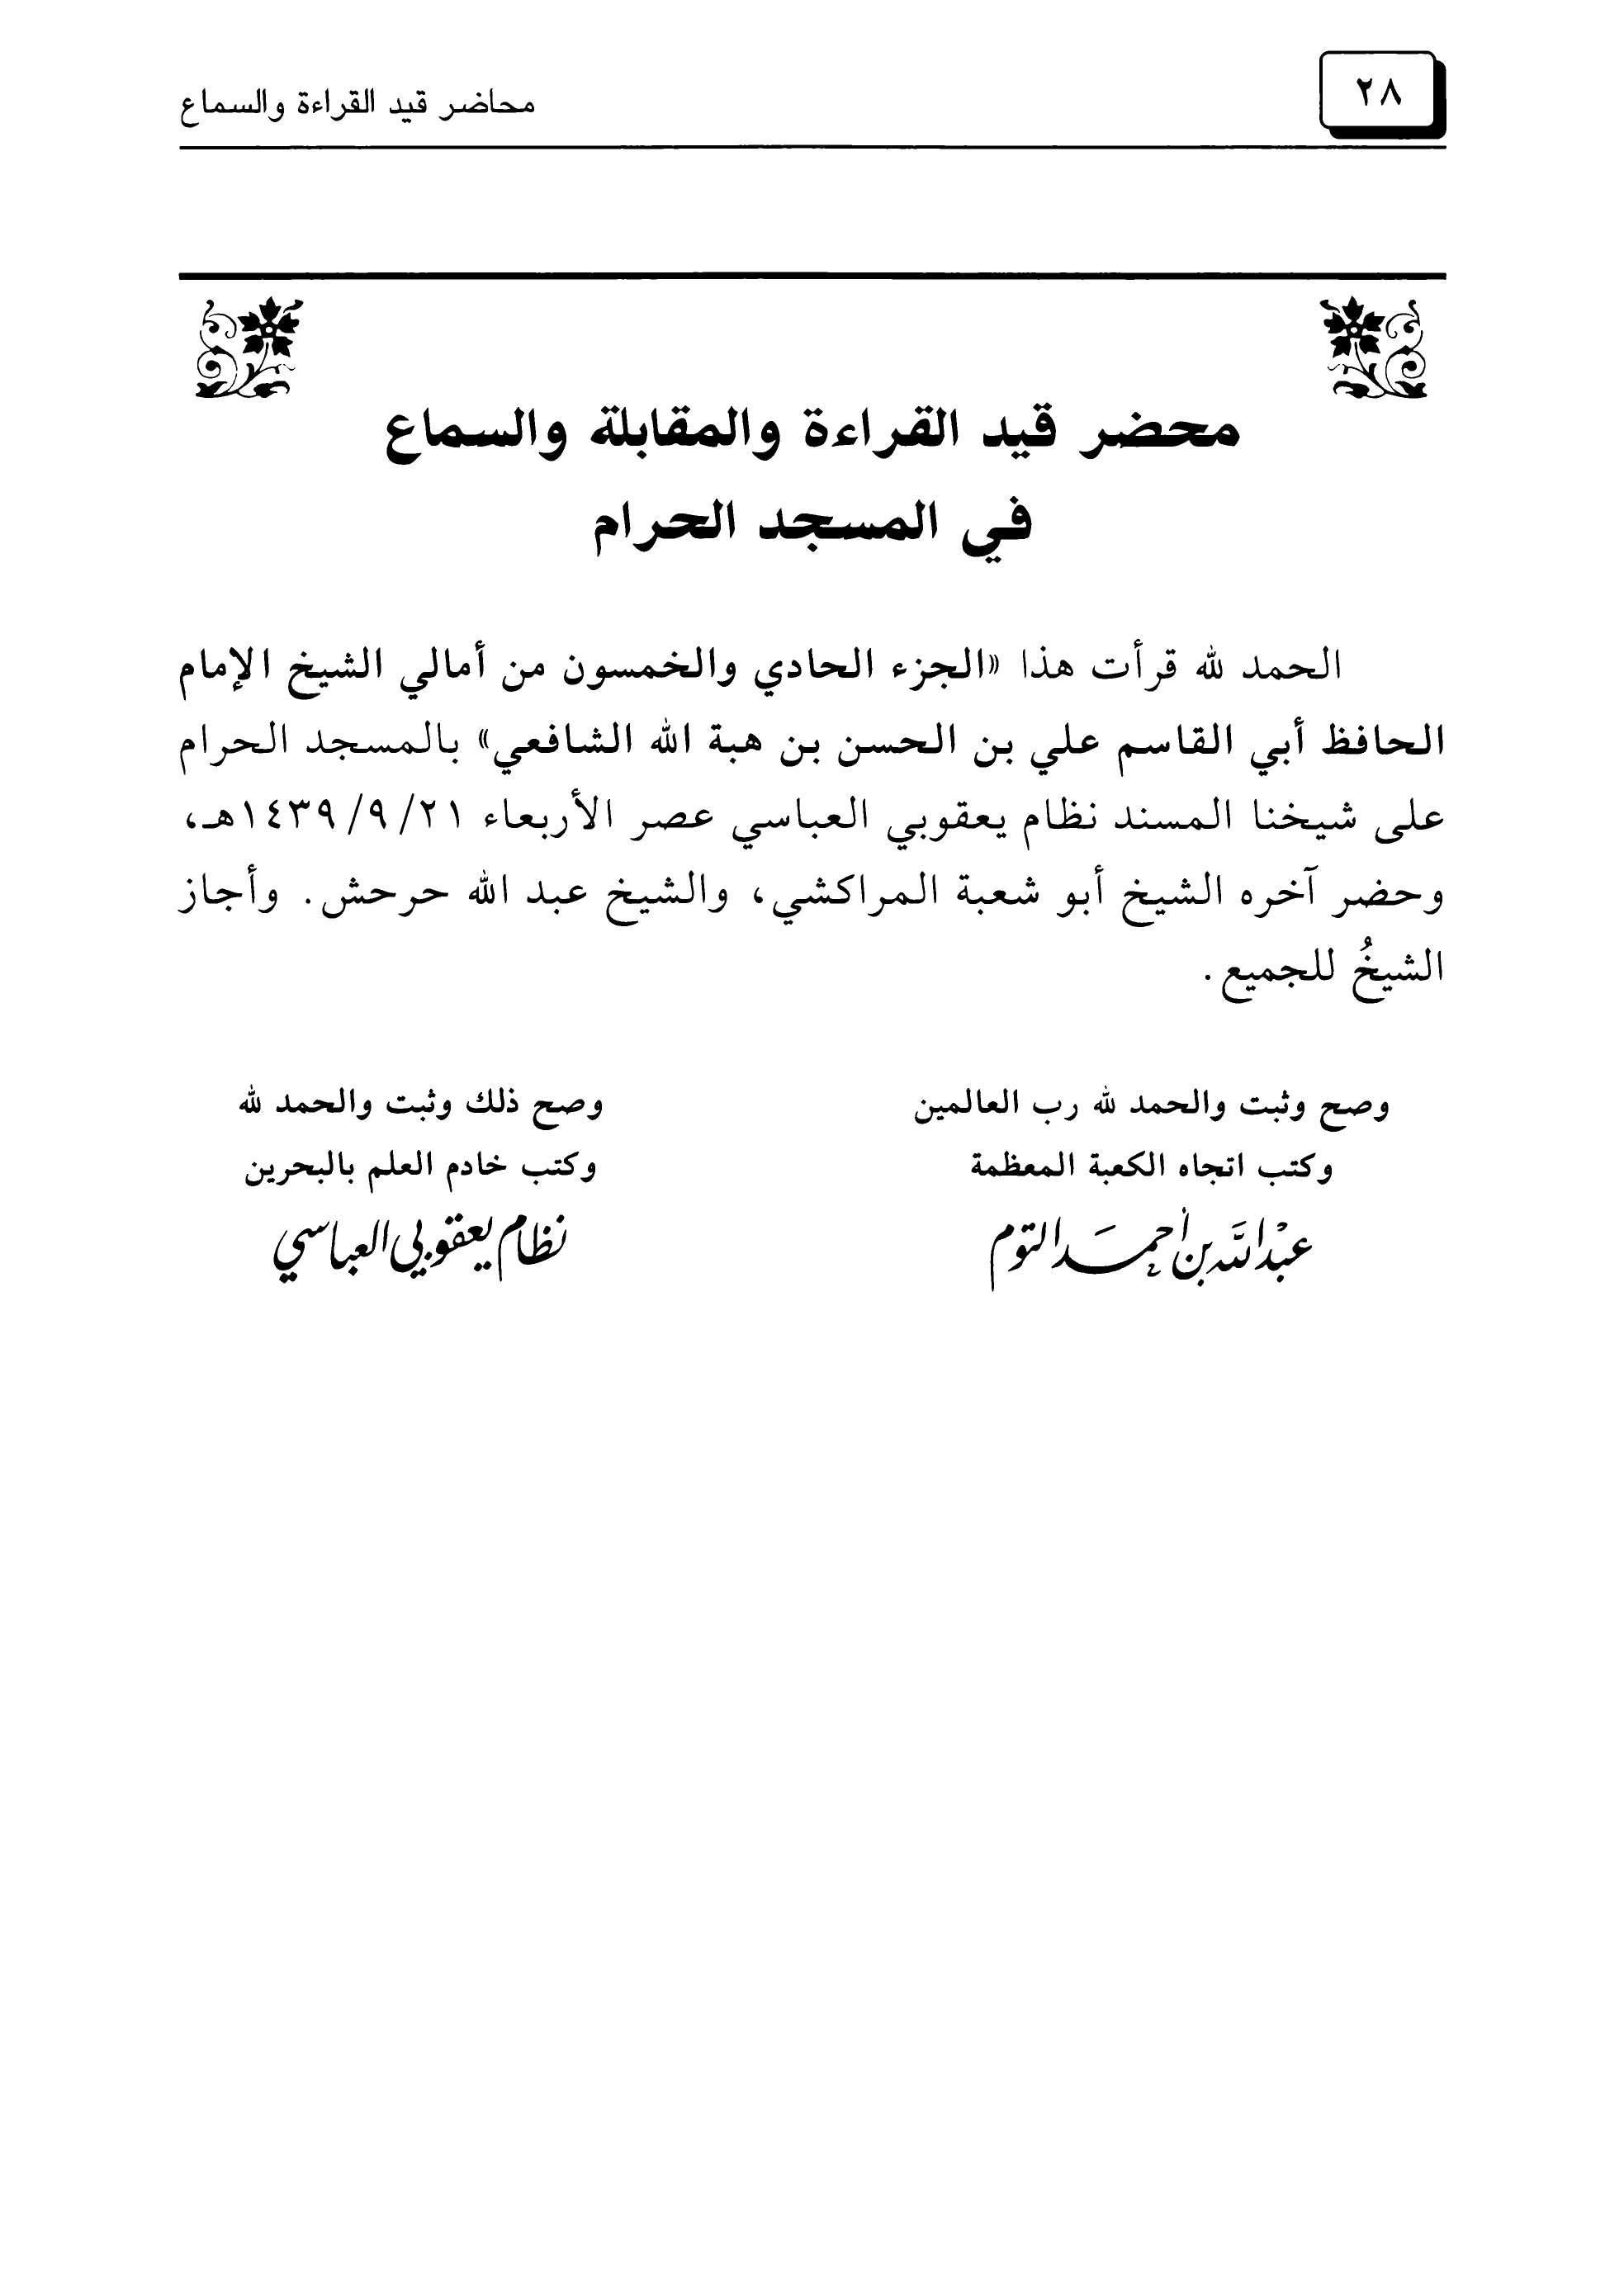 ٢٨
محاضر قيد القراءة والسماع
محضر قيد القراءة والمقابلة والسماع
في المسجد الحرام
الحمد لله قرأت هذا «الجزء الحادي والخمسون من أمالي الشيخ الإمام
الحافظ أبي القاسم علي بن الحسن بن هبة الله الشافعي» بالمسجد الحرام
على شيخنا المسند نظام يعقوبي العباسي عصر الأربعاء ٢١/ ٩/ ١٤٣٩هـ،
وحضر آخره الشيخ أبو شعبة المراكشي، والشيخ عبد الله حرحش. وأجاز
الشيخُ للجميع.
وصح وثبت والحمد لله رب العالمين
وكتب اتجاه الكعبة المعظمة
عبْد اللَّه بن أحمَد التوم
وصح ذلك وثبت والحمد لله
وكتب خادم العلم بالبحرين
نظام يعقوبي العباسي